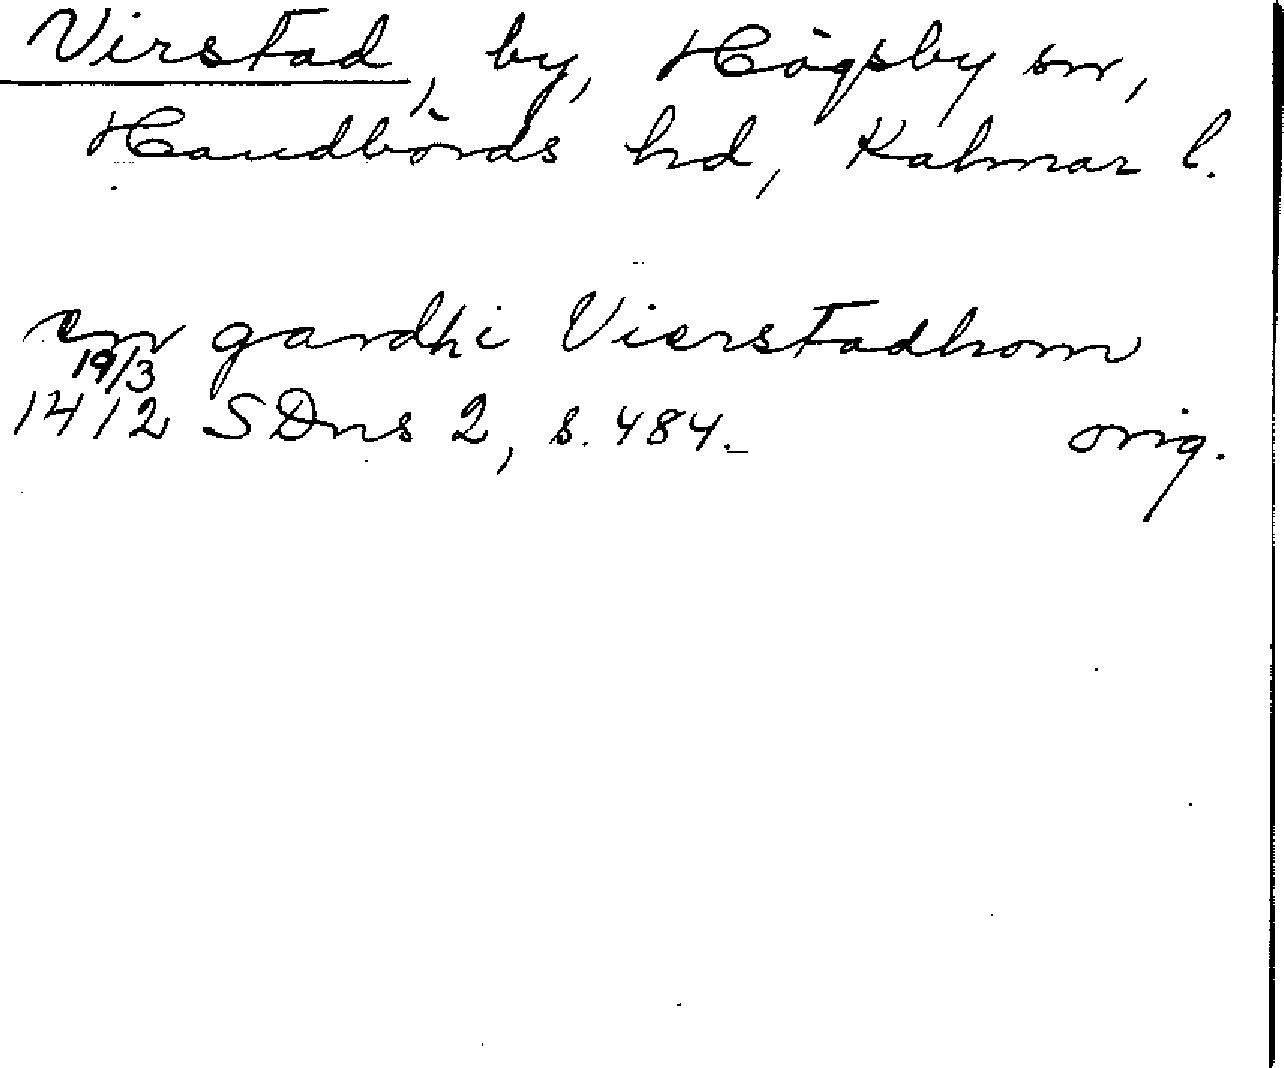 Virstad, by, Högsby sn,
Handbörds hd, Kalmar l.
en gardhi Vierstadhom
19/3
1412 SDns 2, s. 484.
orig.